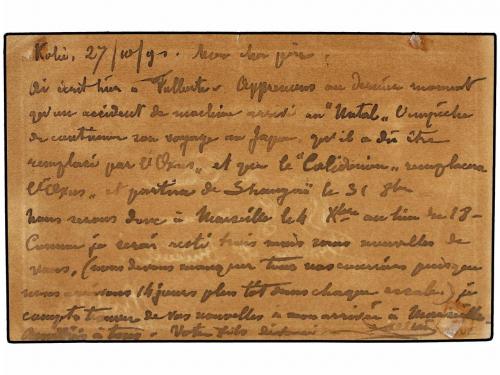 Kobé, 27/10/95. Mon cher père,
Ai écrit hier à Fulbert. Apprenons au dernier moment
qu'un accident de machine arrivé au "Natal" l'empêche
de continuer son voyage au Japon, qu'il a dû être
remplacé par l'"Oxus" et que le "Calédonien" remplacera
l'"Oxus" et partira de Shangaï le 31 8bre
nous serons donc à Marseille le 4 Xbre au lieu de 18-
Comme je serai resté trois mois sans nouvelles de
vous, (nous devons manquer tous nos courriers puisque
nous arrivons 14 jours plus tôt dans chaque escale) je
compte trouver de vos nouvelles à mon arrivée à Marseille
à tous. Votre fils